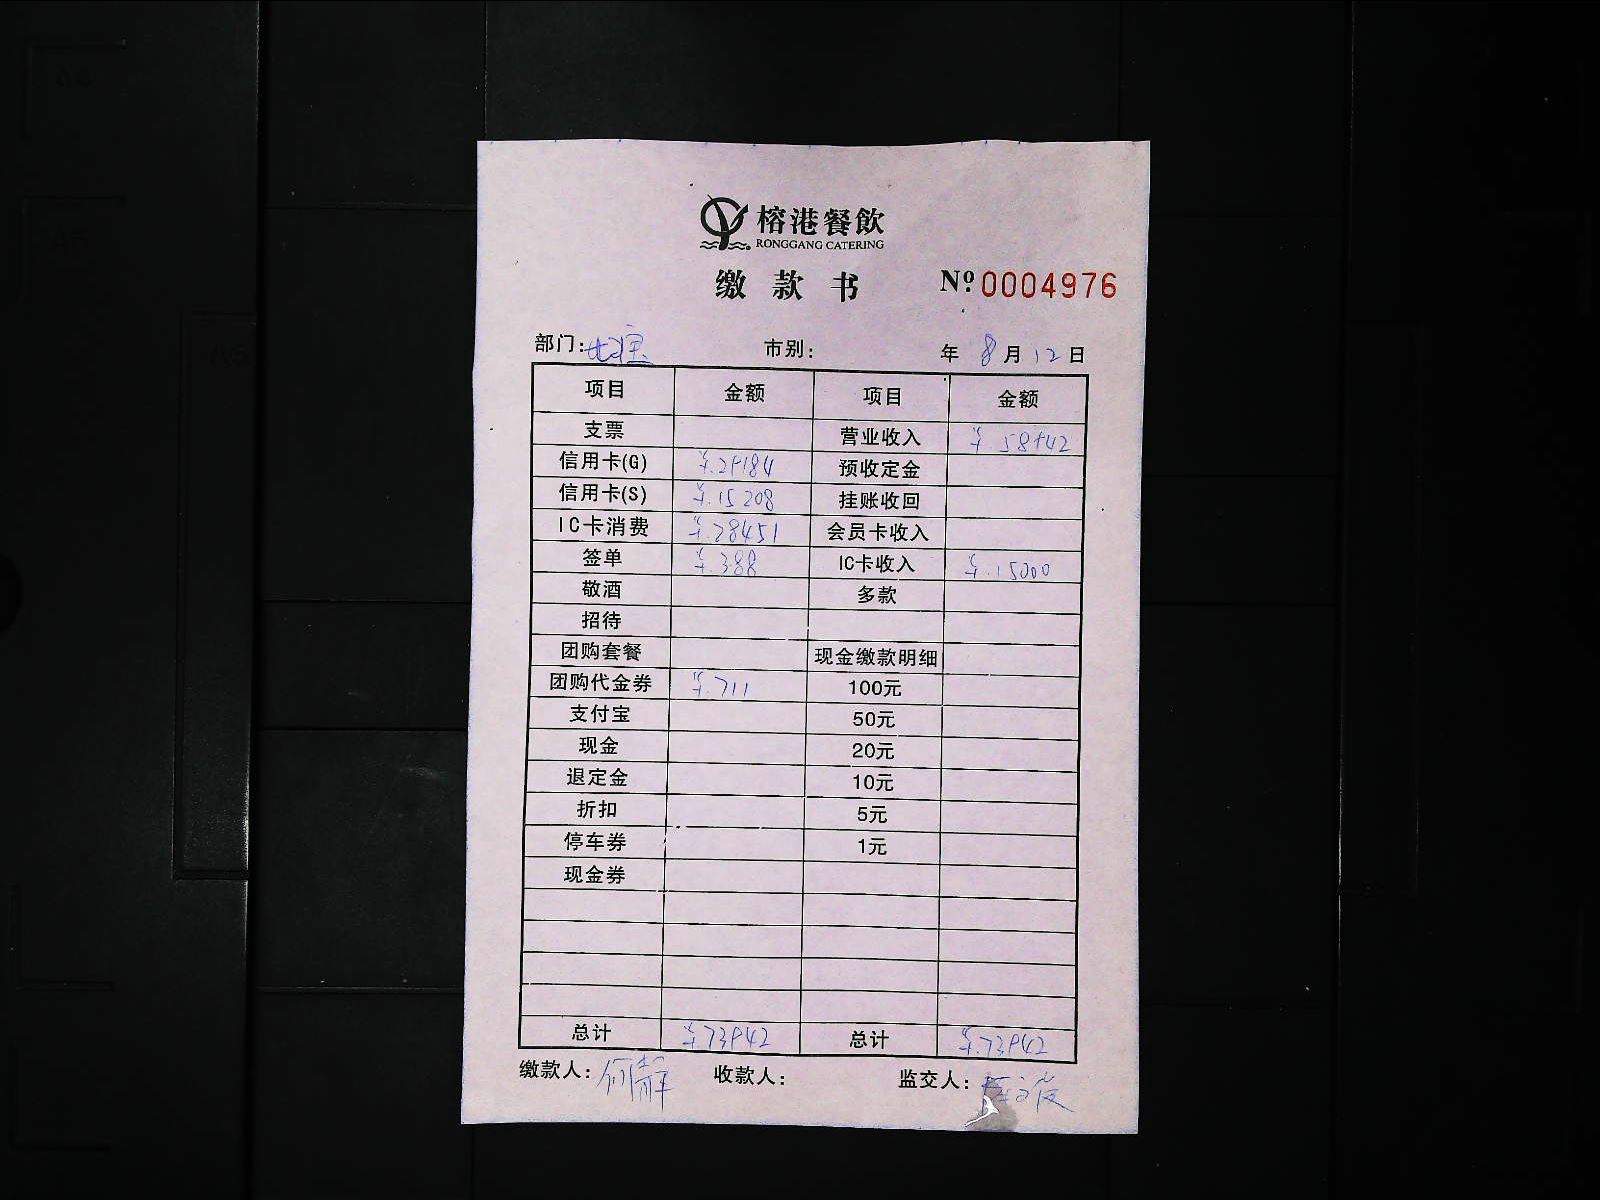 榕港餐飲
RONGGANG CATERING
缴款书 Nº:0004976
部门: 市别: 年 8月12日
项目 金额 项目 金额
支票 营业收入 ¥.58942
信用卡(G) ¥.29184 预收定金
信用卡(S) ¥.15208 挂账收回
IC卡消费 ¥.28451 会员卡收入
签单 ¥.388 IC卡收入 ¥.15000
敬酒 多款
招待
团购套餐 现金缴款明细
团购代金券 ¥.711 100元
支付宝 50元
现金 20元
退定金 10元
折扣 5元
停车券 1元
现金券
总计 ¥73942 总计 ¥.73942
缴款人:何静 收款人: 监交人: